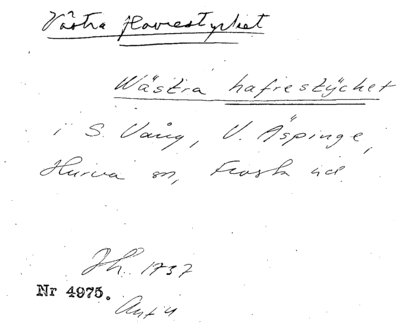 Västra Havrestycket
Wästra hafrestÿcket
i S. Vång, V. Äspinge,
Hurva sn, Frosta hd.
Jh. 1737
Nr 4975.